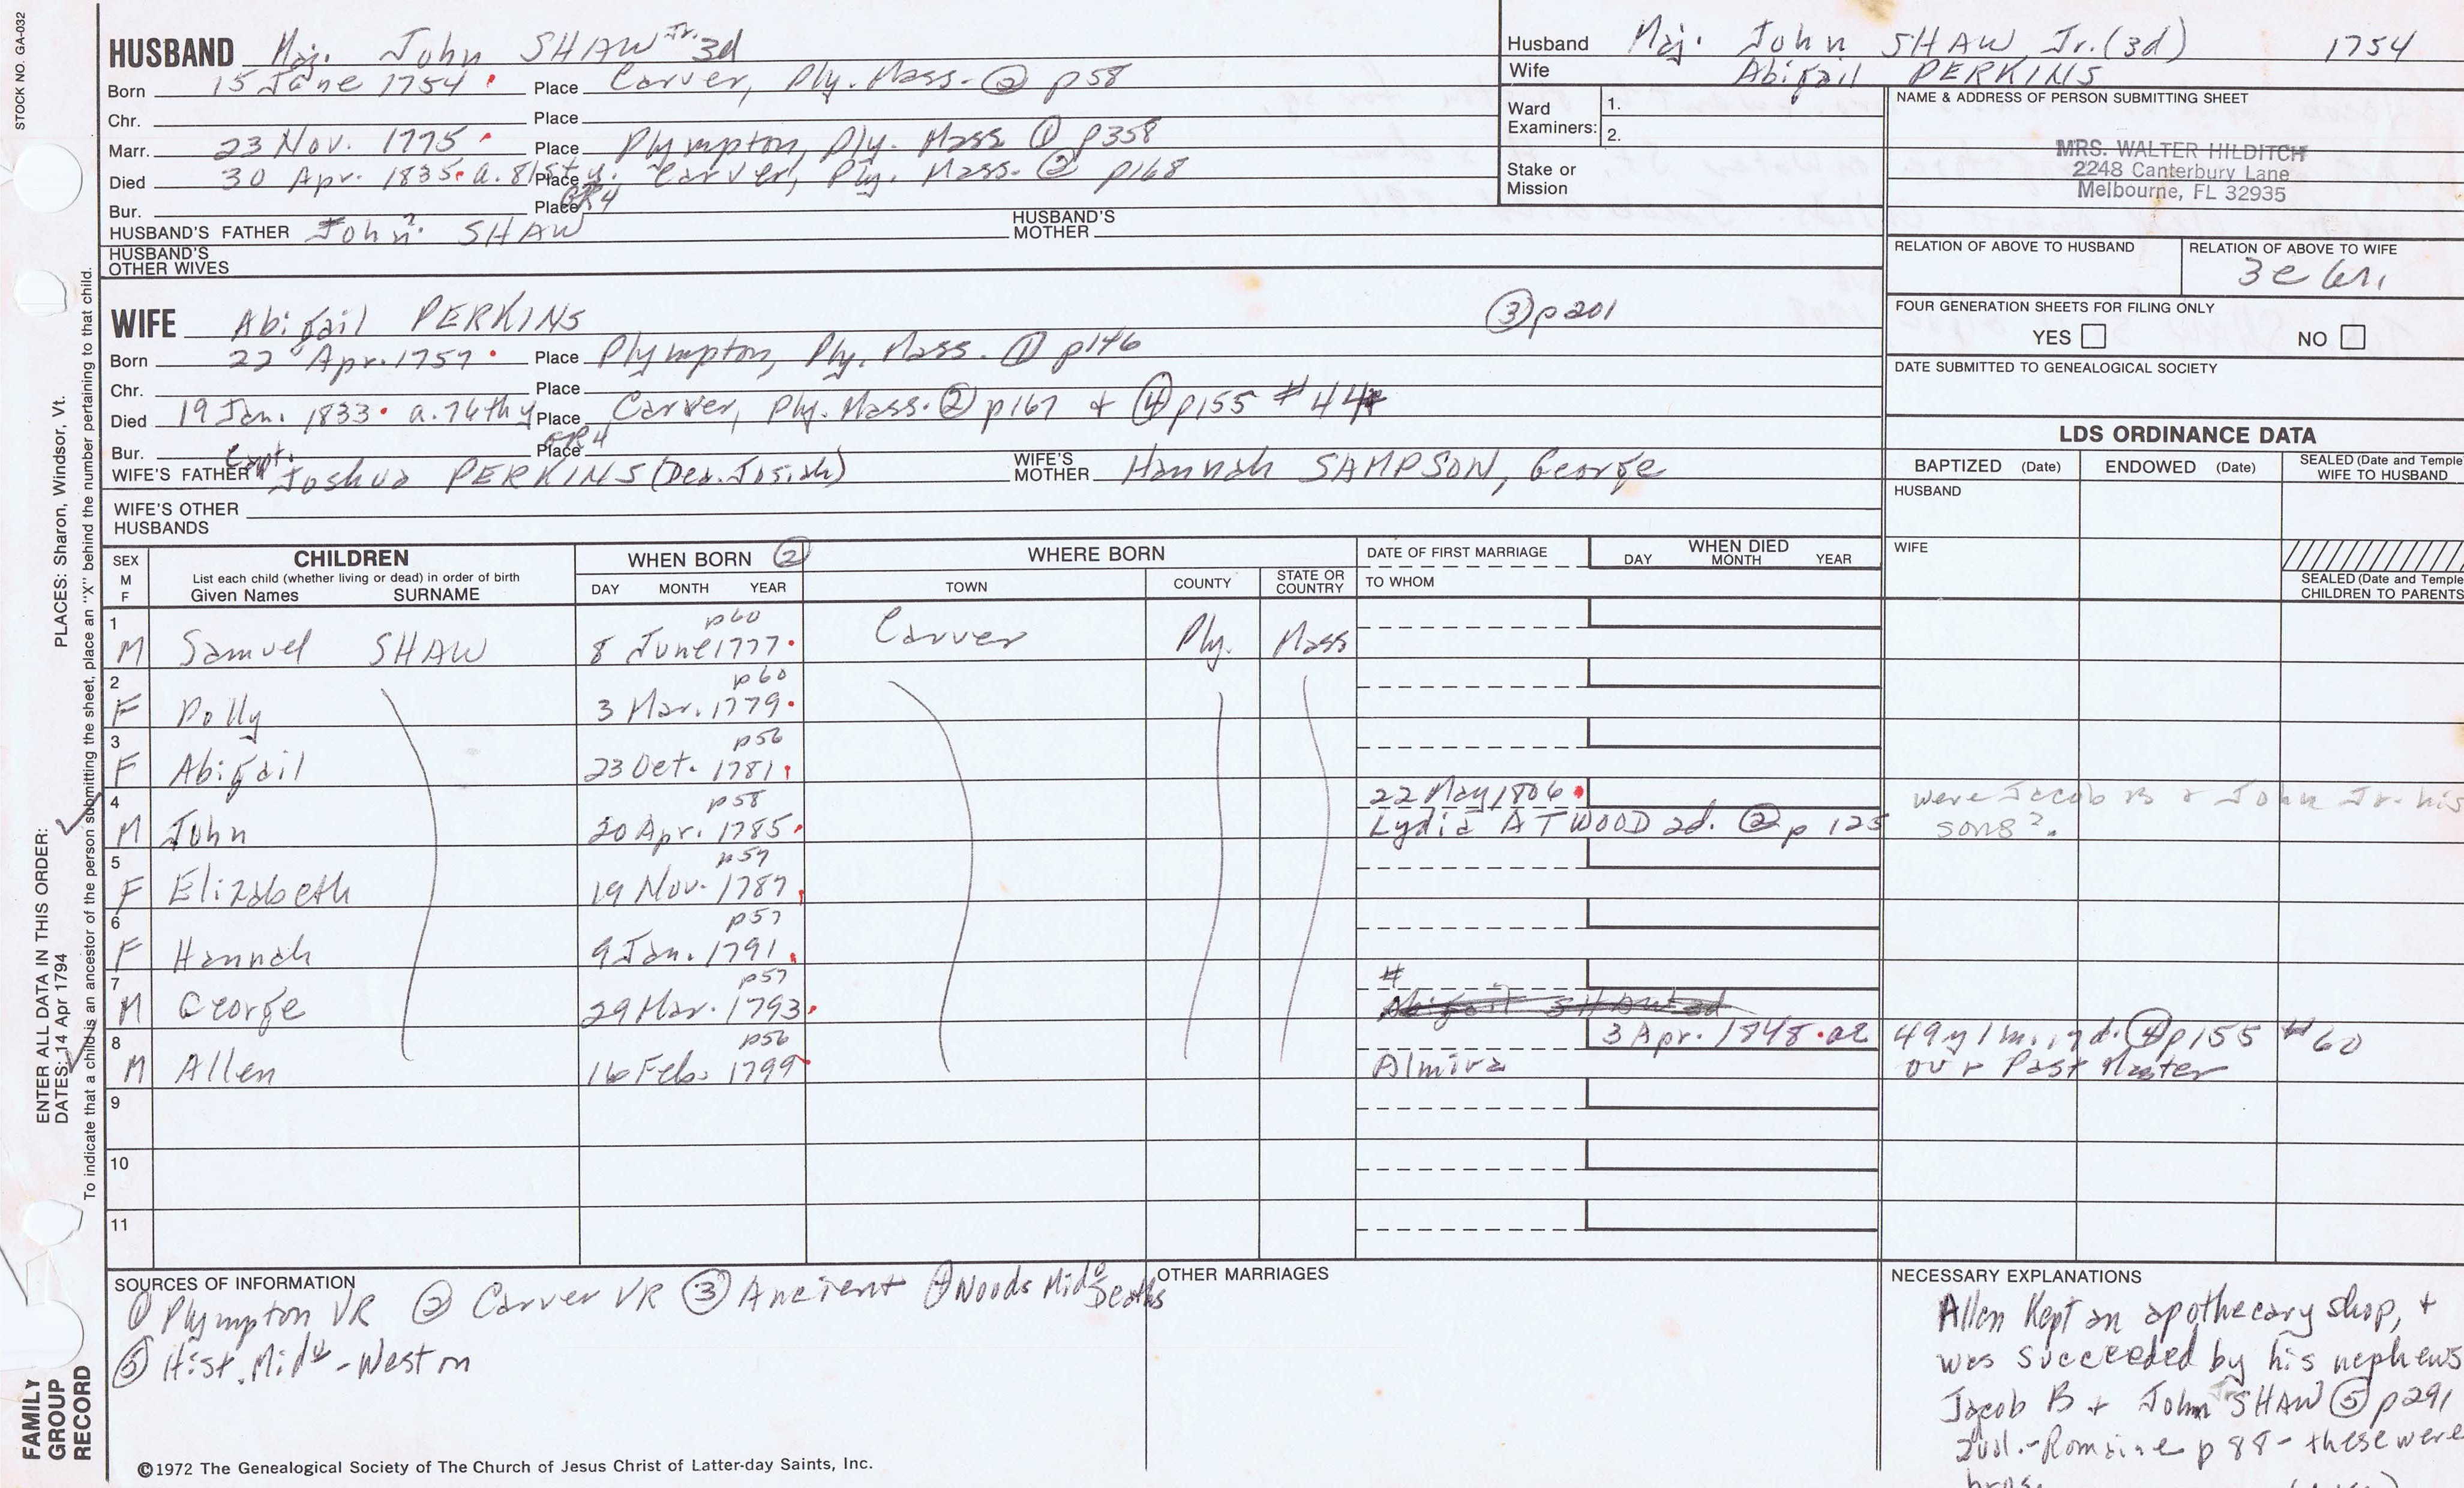 STOCK NO. GA-032
HUSBAND Maj. John SHAW Jr. 3d
Born 15 June 1754 Place Carver, Ply. Mass. ② p58
Chr. Place
Marr. 23 Nov. 1775 Place Plympton, Ply. Mass ① p358
Died 30 Apr. 1835 a. 81st y. Place Carver, Ply. Mass. ② p168
Bur. Place GR4
HUSBAND'S FATHER John? SHAW HUSBAND'S MOTHER
HUSBAND'S OTHER WIVES
Husband Maj. John SHAW Jr. (3d) 1754
Wife Abigail PERKINS
Ward Examiners: 1. 2.
Stake or Mission
NAME & ADDRESS OF PERSON SUBMITTING SHEET
MRS. WALTER HILDITCH
2248 Canterbury Lane
Melbourne, FL 32935
RELATION OF ABOVE TO HUSBAND RELATION OF ABOVE TO WIFE
3c
FOUR GENERATION SHEETS FOR FILING ONLY
YES NO
DATE SUBMITTED TO GENEALOGICAL SOCIETY
WIFE Abigail PERKINS ③ p201
Born 22 Apr. 1757 Place Plympton, Ply. Mass. ① p146
Chr. Place
Died 19 Jan. 1833 a. 76th y Place Carver, Ply. Mass. ② p167 + ④ p155 #44
Bur. Place GR4
WIFE'S FATHER Capt. Joshua PERKINS (Dea. Josiah) WIFE'S MOTHER Hannah SAMPSON, George
WIFE'S OTHER HUSBANDS
LDS ORDINANCE DATA
BAPTIZED (Date) ENDOWED (Date) SEALED (Date and Temple
WIFE TO HUSBAND
HUSBAND
WIFE
SEALED (Date and Temple
CHILDREN TO PARENTS
SEX M F
CHILDREN
List each child (whether living or dead) in order of birth
Given Names SURNAME
WHEN BORN ②
DAY MONTH YEAR
WHERE BORN
TOWN COUNTY STATE OR COUNTRY
DATE OF FIRST MARRIAGE
TO WHOM
WHEN DIED
DAY MONTH YEAR
1 p60
M Samuel SHAW 8 June 1777 Carver Ply. Mass
2 p60
F Polly 3 Mar. 1779
3 p56
F Abigail 23 Oct. 1781
4 p58 22 May 1806 were Jacob B + John Jr. his
M John 20 Apr. 1785 Lydia ATWOOD 2d. ② p 125 sons?
5 p57
F Elizabeth 19 Nov. 1787
6 p57
F Hannah 9 Jan. 1791
7 p57 #
M George 29 Mar. 1793 Abigail SHAW 2d
8 p56 3 Apr. 1848 ae 49 y 1 m. 17 d. ④ p155 #60
M Allen 16 Feb. 1799 Almira our Past Master
9
10
11
SOURCES OF INFORMATION
① Plympton VR ② Carver VR ③ Ancient ④ Woods Midº Deaths
⑤ Hist. Midº - Weston
OTHER MARRIAGES
NECESSARY EXPLANATIONS
Allen Kept an apothecary shop, +
was succeeded by his nephews
Jacob B + John Jr SHAW ⑤ p291
2vol. - Romaine p 88 - these were
bros.
©1972 The Genealogical Society of The Church of Jesus Christ of Latter-day Saints, Inc.
ENTER ALL DATA IN THIS ORDER:
DATES: 14 Apr 1794 PLACES: Sharon, Windsor, Vt.
To indicate that a child is an ancestor of the person submitting the sheet, place an "X" behind the number pertaining to that child.
FAMILY
GROUP
RECORD